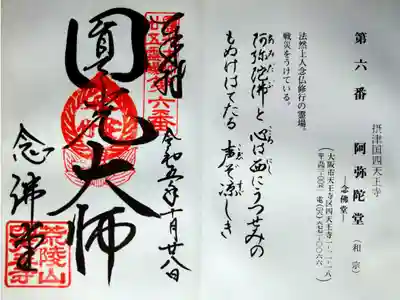 第六番 阿弥陀堂（和宗）
摂津国四天王寺
―念佛堂―
大阪市天王寺区四天王寺一-一-一八
法然上人念仏修行の霊場。
戦災をうけている。
阿弥陀佛と 心は西にうつせみの
もぬけはてたる 声ぞ凉しき
奉拝
第六番
圓光大師
令和五年十月廿八日
念佛堂
荒陵山